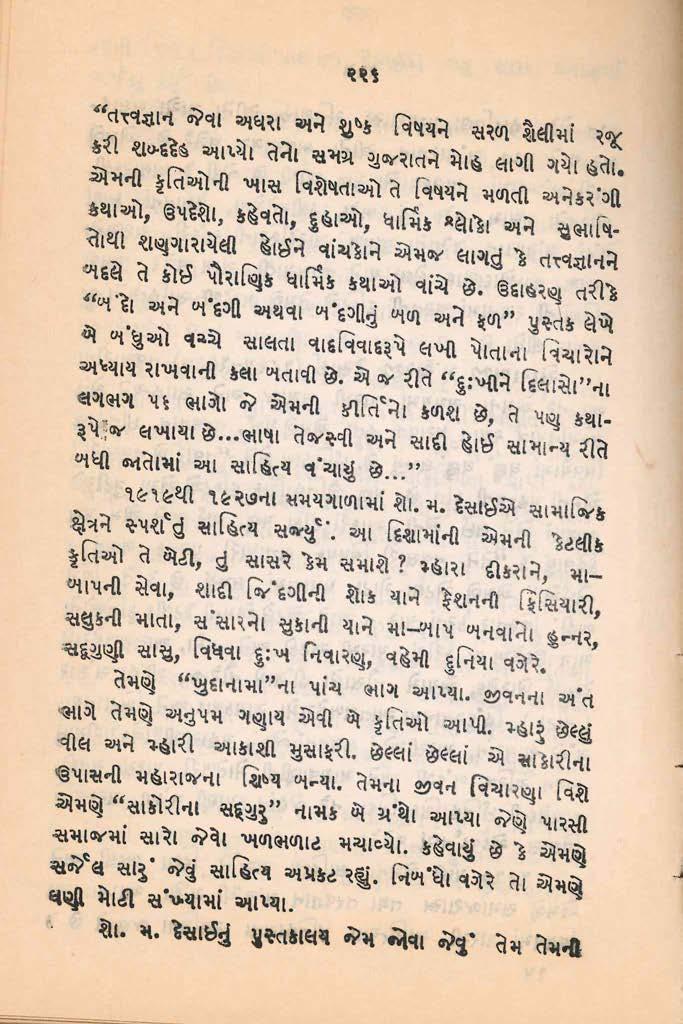 ૨૨૬
“તત્ત્વજ્ઞાન જેવા અઘરા અને શુષ્ક વિષયને સરળ શૈલીમાં રજૂ
કરી શબ્દદેહ આપ્યો તેનો સમગ્ર ગુજરાતને મોહ લાગી ગયો હતો.
એમની કૃતિઓની ખાસ વિશેષતાઓ તે વિષયને મળતી અનેકરંગી
કથાઓ, ઉપદેશો, કહેવતો, દુહાઓ, ધાર્મિક શ્લોકો અને સુભાષિ-
તોથી શણગારાયેલી હોઈને વાંચકોને એમજ લાગતું કે તત્ત્વજ્ઞાનને
બદલે તે કોઈ પૌરાણિક ધાર્મિક કથાઓ વાંચે છે. ઉદાહરણ તરીકે
“બંદો અને બંદગી અથવા બંદગીનું બળ અને ફળ” પુસ્તક લેખે
બે બંધુઓ વચ્ચે સાલતા વાદવિવાદરૂપે લખી પોતાના વિચારોને
અધ્યાય રાખવાની કલા બતાવી છે. એ જ રીતે “દુઃખીને દિલાસો”ના
લગભગ ૫૬ ભાગો જે એમની કીર્તિનો કળશ છે, તે પણ કથા-
રૂપે જ લખાયા છે...ભાષા તેજસ્વી અને સાદી હોઈ સામાન્ય રીતે
બધી જાતોમાં આ સાહિત્ય વંચાયું છે...”
૧૯૧૯થી ૧૯૨૭ના સમયગાળામાં શો. મ. દેસાઈએ સામાજિક
ક્ષેત્રને સ્પર્શતું સાહિત્ય સર્જ્યું. આ દિશામાંની એમની કેટલીક
કૃતિઓ તે બેટી, તું સાસરે કેમ સમાશે? મ્હારા દીકરાને, મા-
બાપની સેવા, શાદી જિંદગીની શોક યાને ફેશનની ફિસિયારી,
સલુકની માતા, સંસારનો સુકાની યાને મા-બાપ બનવાનો હુન્નર,
સદ્ગુણી સાસુ, વિધવા દુઃખ નિવારણ, વહેમી દુનિયા વગેરે.
તેમણે “ખુદાનામા”ના પાંચ ભાગ આપ્યા. જીવનના અંત
ભાગે તેમણે અનુપમ ગણાય એવી બે કૃતિઓ આપી. મ્હારું છેલ્લું
વીલ અને મ્હારી આકાશી મુસાફરી. છેલ્લાં છેલ્લાં એ સાકોરીના
ઉપાસની મહારાજના શિષ્ય બન્યા. તેમના જીવન વિચારણા વિશે
એમણે “સાકોરીના સદ્ગુરુ” નામક બે ગ્રંથો આપ્યા જેણે પારસી
સમાજમાં સારો જેવો ખળભળાટ મચાવ્યો. કહેવાયું છે કે એમણે
સર્જેલ સારું જેવું સાહિત્ય અપ્રકટ રહ્યું. નિબંધો વગેરે તો એમણે
ઘણી મોટી સંખ્યામાં આપ્યા.
શો. મ. દેસાઈનું પુસ્તકાલય જેમ જોવા જેવું તેમ તેમની